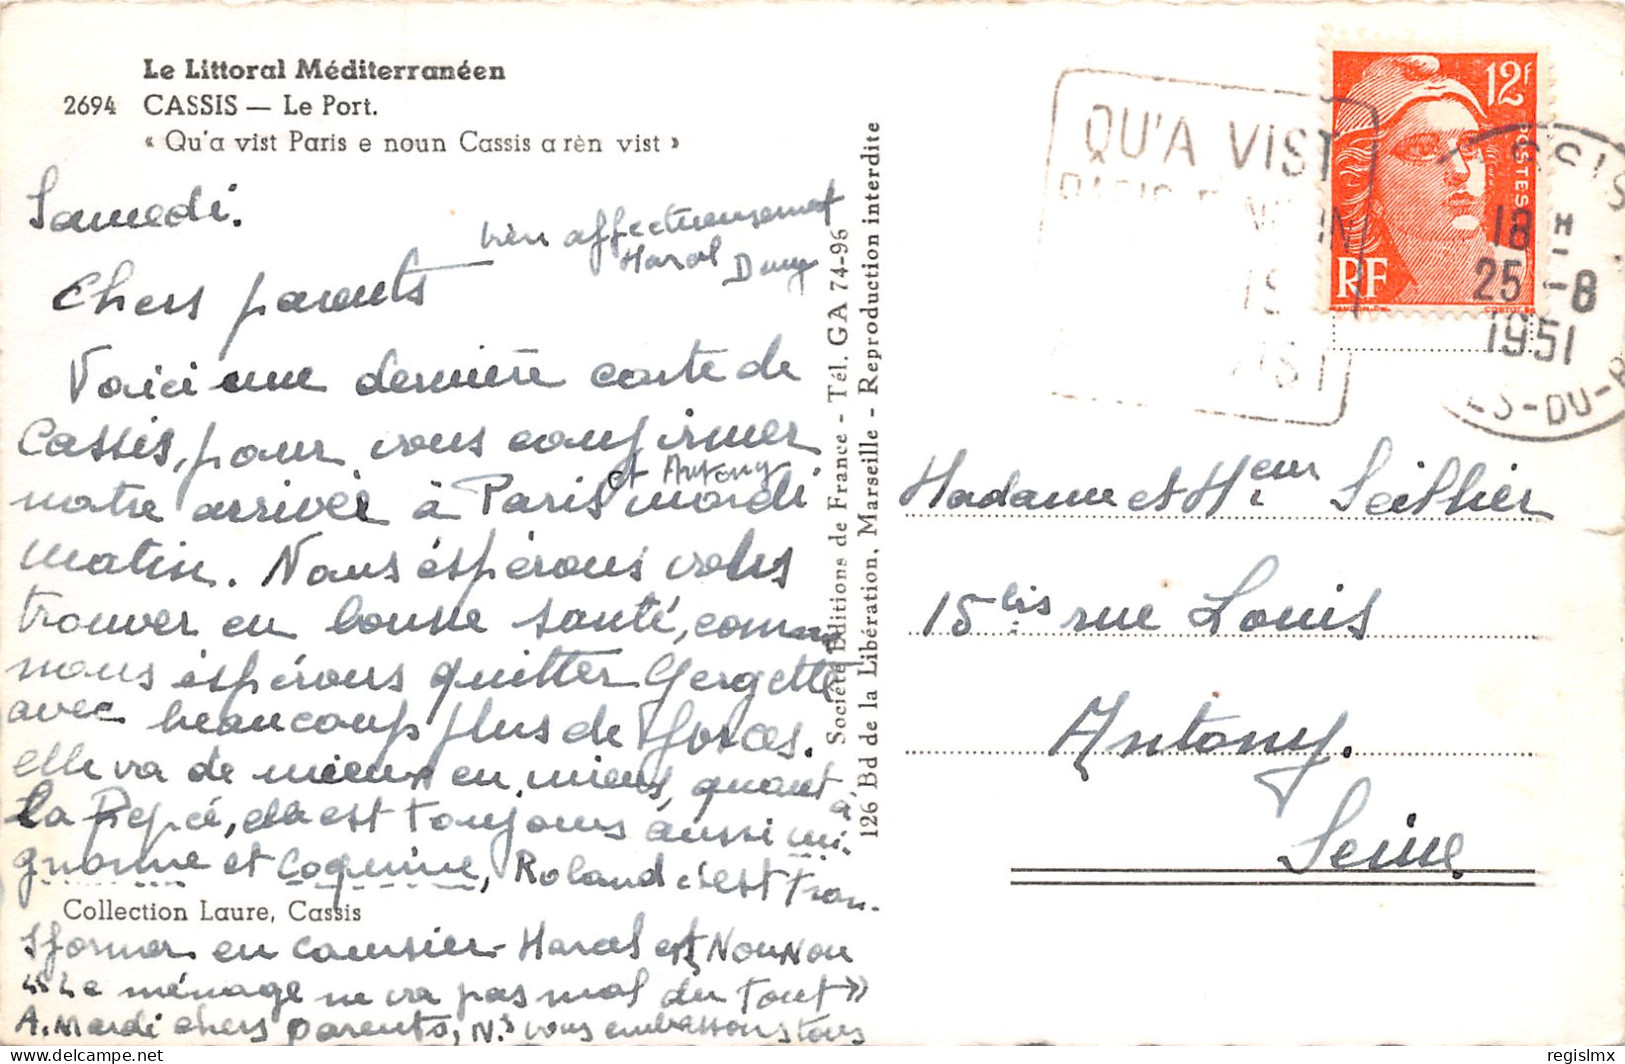 Le Littoral Méditerranéen
2694 CASSIS — Le Port.
« Qu'a vist Paris e noun Cassis a rèn vist »
Samedi.
très affectueusement
Marcel
Chers parents
Voici une dernière carte de
Cassis, pour vous confirmer
et Antony
notre arrivée à Paris mardi
matin. Nous éspérons vous
trouver en bonne santé, comme
nous éspérons quitter Gergette
avec beaucoup plus de forces.
elle va de mieux en mieux, quant à
la Pepée, elle est toujours aussi mi-
gnonne et coquine, Roland c'est tran-
Collection Laure, Cassis
sformer en coursier Marcel et NouNou
"Le ménage ne va pas mal du tout"
A. Mardi chers parents, Ns vous embrassons tous
Société Editions de France - Tél. GA 74-96
126 Bd de la Libération, Marseille - Reproduction interdite
QU'A VIST
PARIS E NOUN
VIST
12F
POSTES
RF
18 H
25 -8
1951
Madame et Mr Seillier
15 bis rue Louis
Antony.
Seine
regislmx
www.delcampe.net